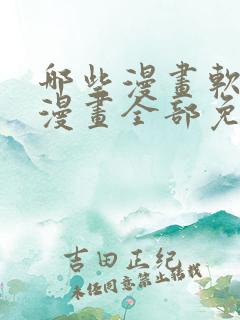 哪些漫畫軟
漫畫全部免
吉田正纪
未经同意禁止转载